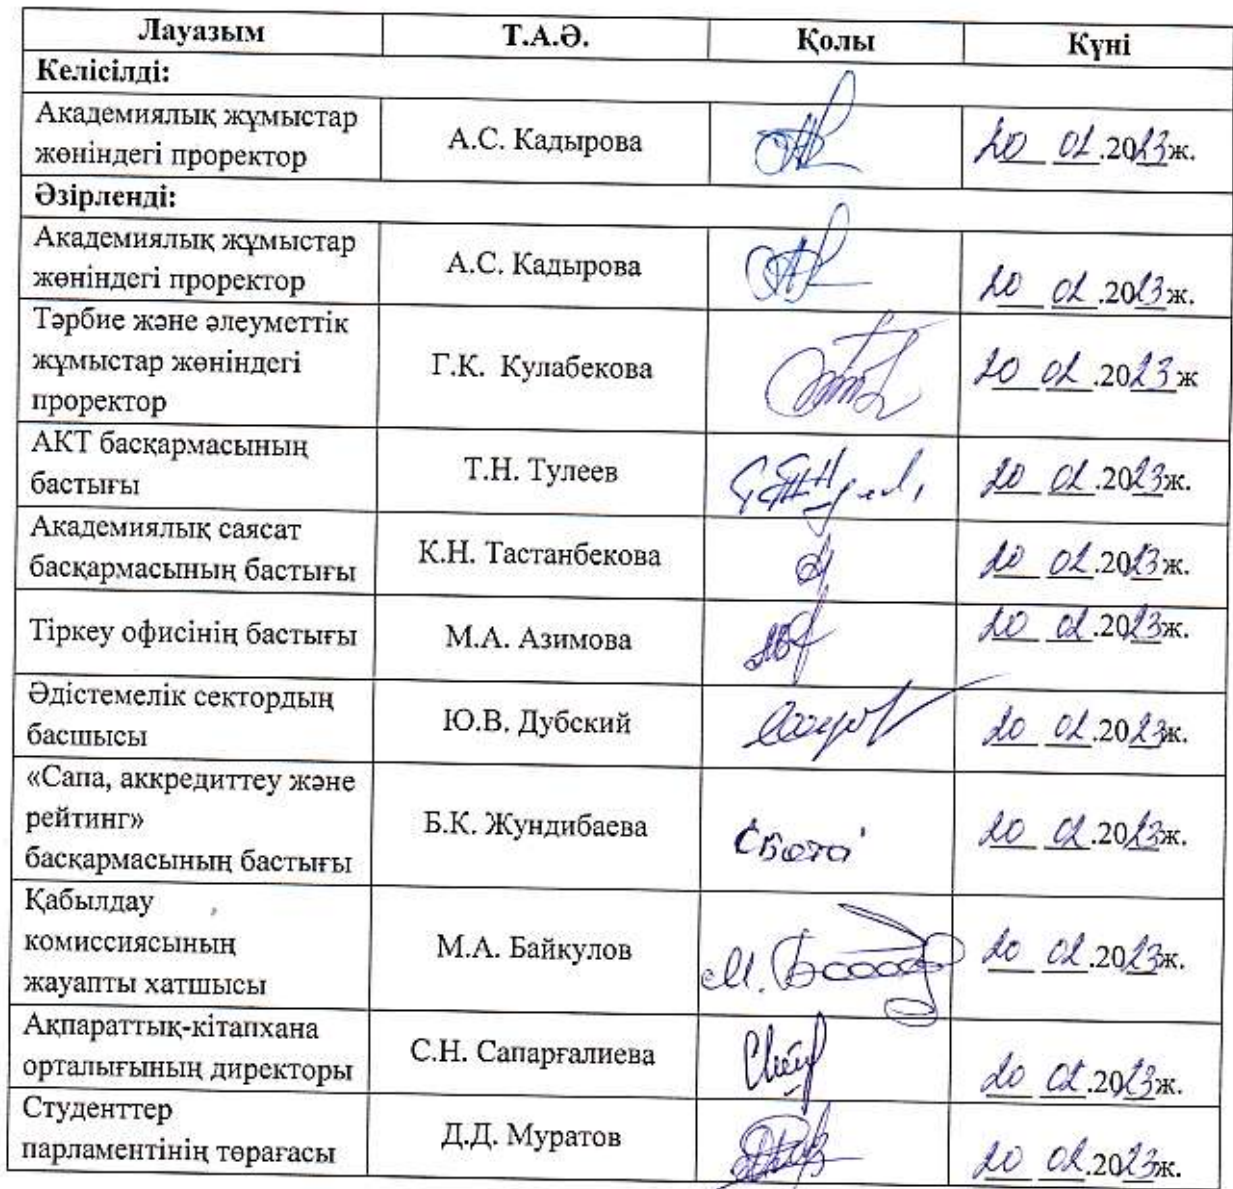 Лауазым Т.А.Ә. Қолы Күні
Келісілді:
Академиялық жұмыстар
жөніндегі проректор А.С. Кадырова 20 02.2023ж.
Әзірленді:
Академиялық жұмыстар
жөніндегі проректор А.С. Кадырова 20 02.2023ж.
Тәрбие және әлеуметтік
жұмыстар жөніндегі Г.К. Кулабекова 20 02.2023ж
проректор
АКТ басқармасының
бастығы Т.Н. Тулеев 20 02.2023ж.
Академиялық саясат
басқармасының бастығы К.Н. Тастанбекова 20 02.2023ж.
Тіркеу офисінің бастығы М.А. Азимова 20 02.2023ж.
Әдістемелік сектордың
басшысы Ю.В. Дубский 20 02.2023ж.
«Сапа, аккредиттеу және
рейтинг» Б.К. Жундибаева 20 02.2023ж.
басқармасының бастығы
Қабылдау
комиссиясының М.А. Байкулов 20 02.2023ж.
жауапты хатшысы
Ақпараттық-кітапхана
орталығының директоры С.Н. Сапарғалиева 20 02.2023ж.
Студенттер
парламентінің төрағасы Д.Д. Муратов 20 02.2023ж.